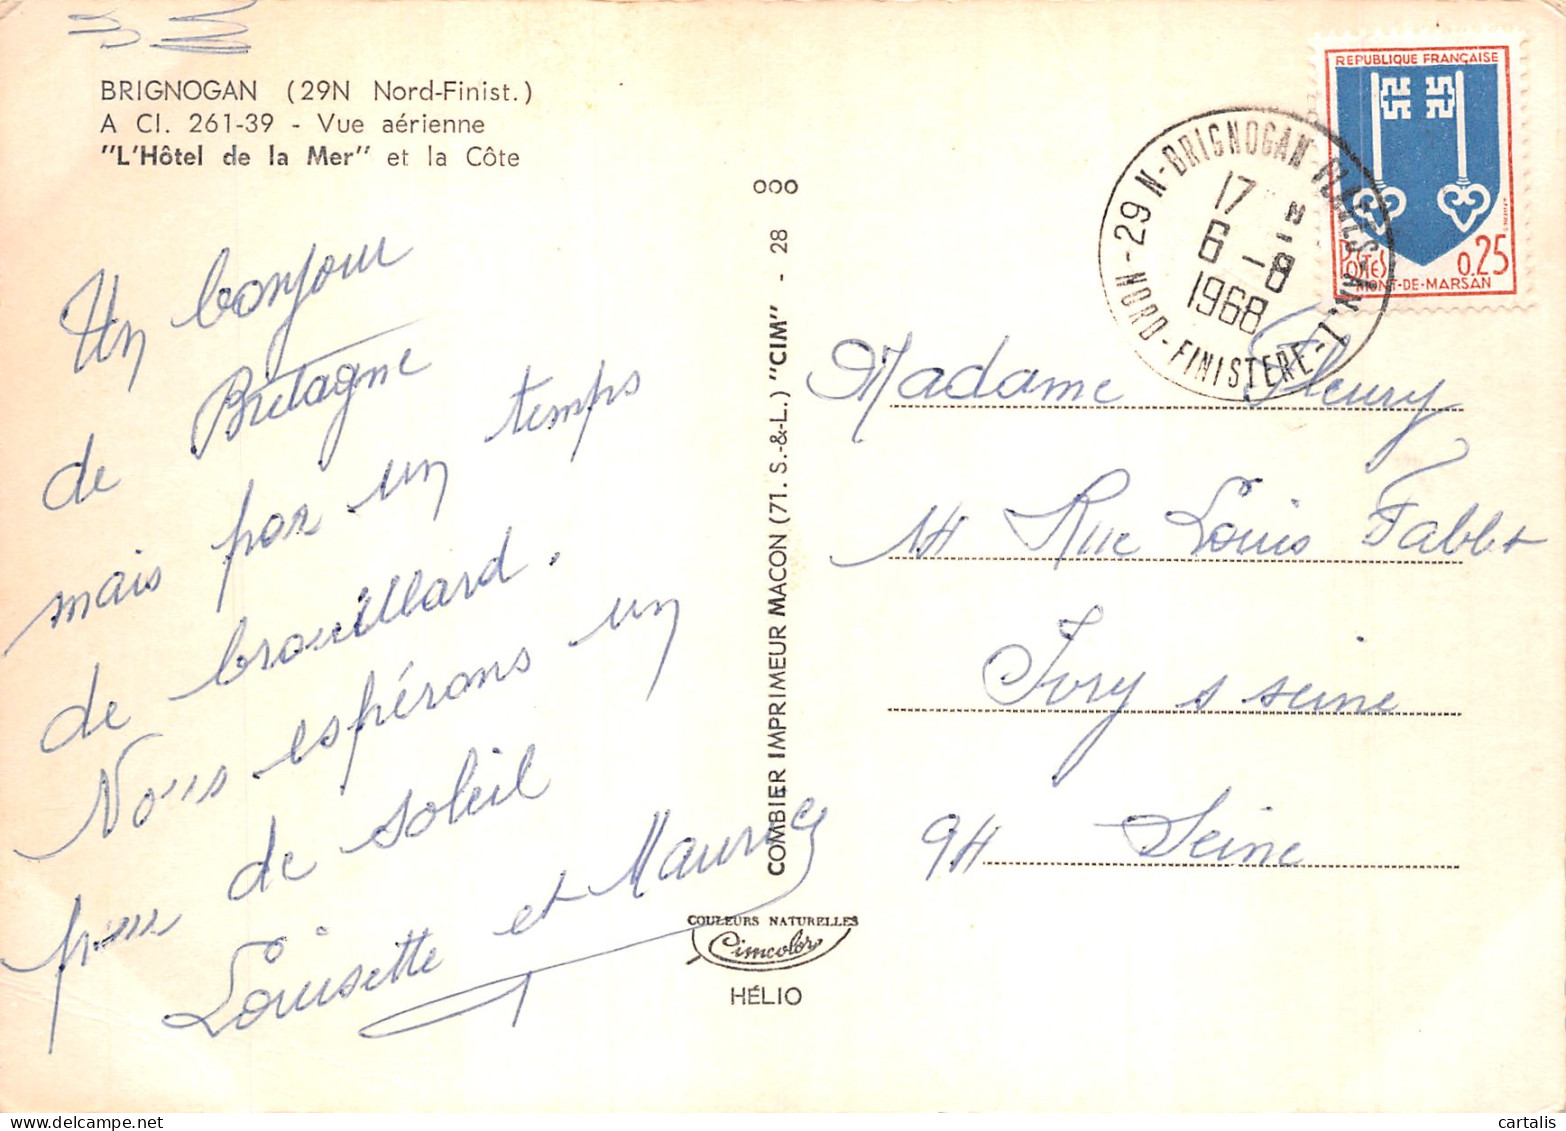 BRIGNOGAN (29N Nord-Finist.)
A Cl. 261-39 - Vue aérienne
"L'Hôtel de la Mer" et la Côte
Un bonjour
de Bretagne
mais par un temps
de brouillard.
Nous espérons un
peu de soleil
Louisette et Maurice
OOO
COMBIER IMPRIMEUR MACON (71. S.-&-L.) "CIM" - 28
COULEURS NATURELLES
Cimcolor
HÉLIO
REPUBLIQUE FRANÇAISE
POSTES
0.25
MONT-DE-MARSAN
29 N-BRIGNOGAN-PLAGES-AN.1
NORD-FINISTERE
17 H
6 -8
1968
Madame Fleury
14 Rue Louis Fablet
Ivry s seine
94 Seine
cartalis